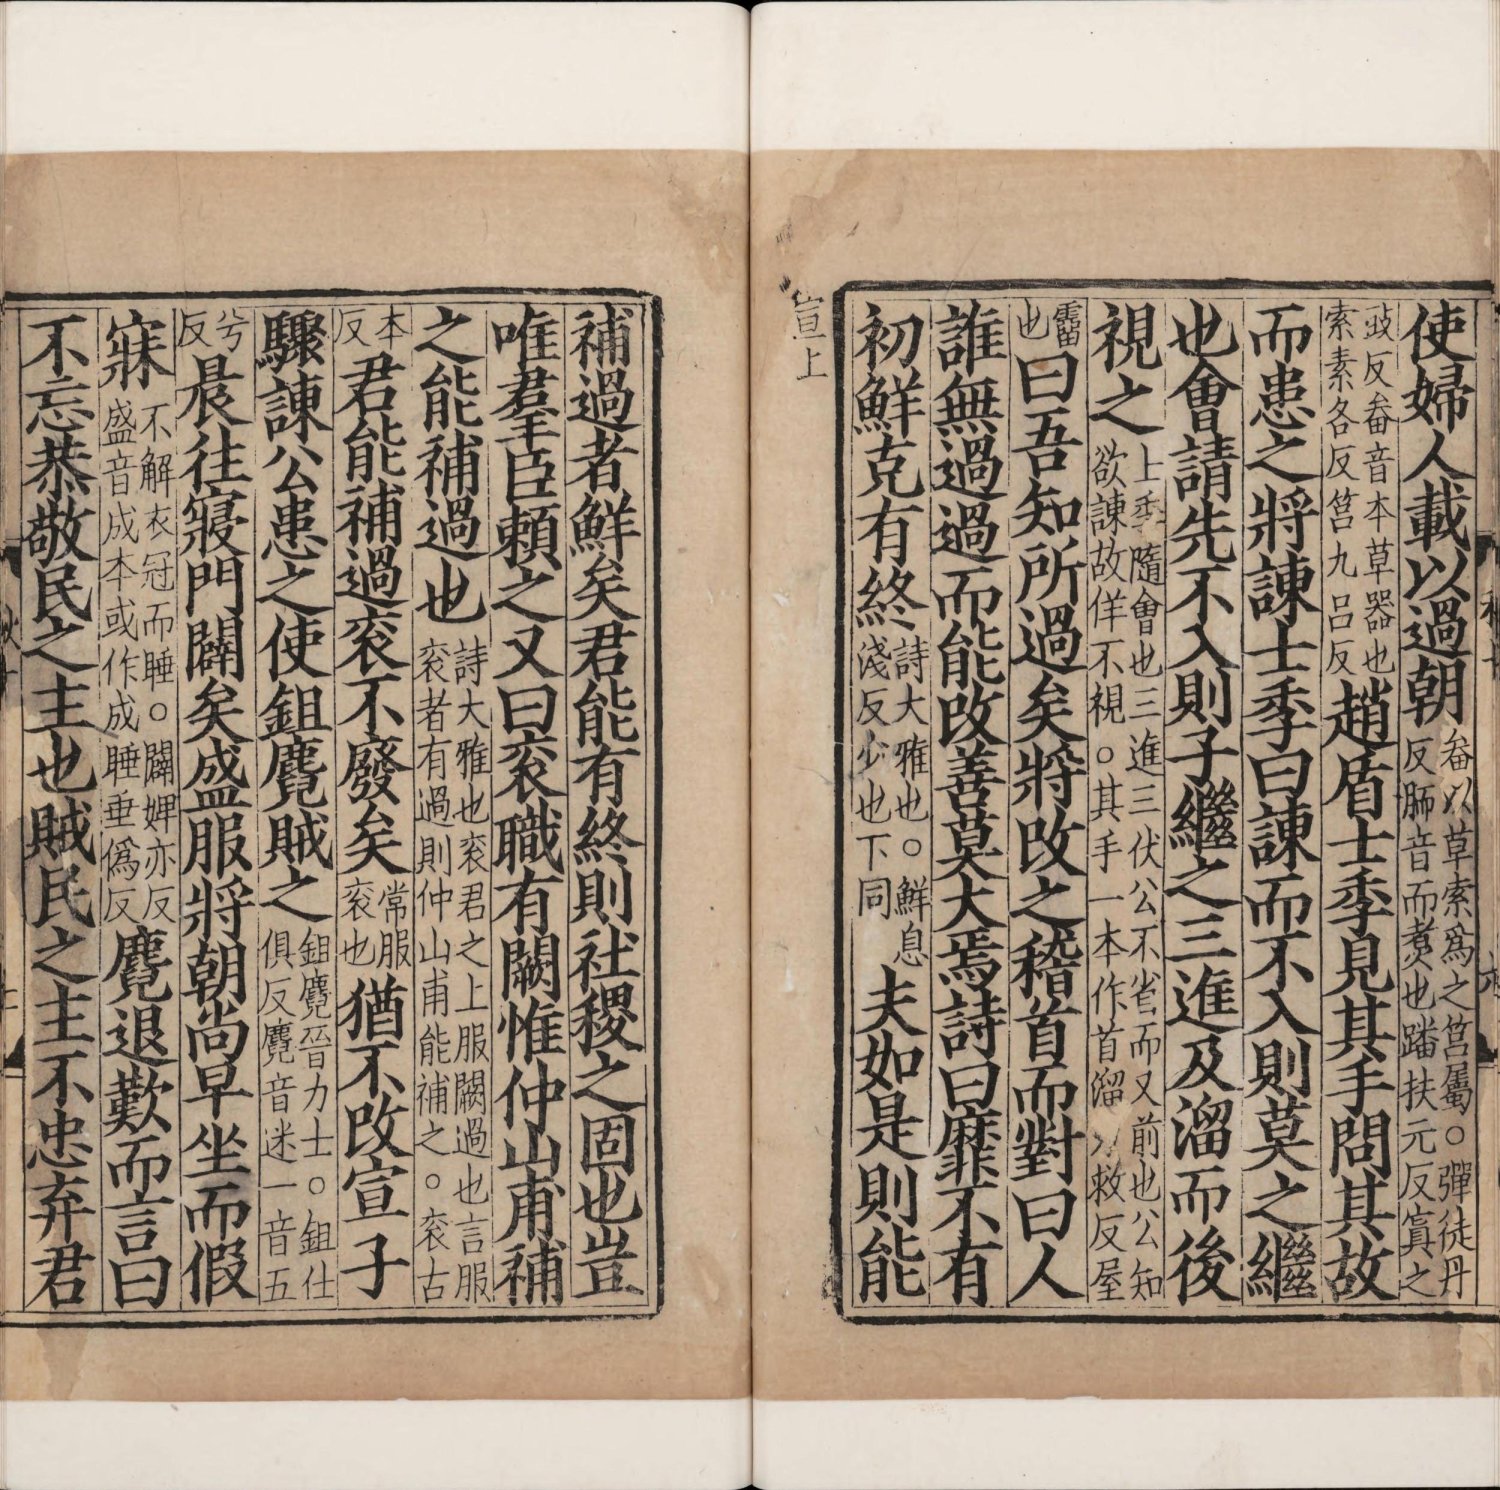 使婦人載以過朝畚以草索爲之筥屬○彈徒丹反胹音而煮也蹯扶元反寘之
豉反畚音本草器也索素各反筥九呂反趙盾士季見其手問其故
而患之將諫士季曰諫而不入則莫之繼
也會請先不入則子繼之三進及溜而後
視之上季隨會也三進三伏公不省而又前也公知欲諫故佯不視○其手一本作首溜力救反屋
霤也曰吾知所過矣將改之稽首而對曰人
誰無過過而能改善莫大焉詩曰靡不有
初鮮克有終詩大雅也○鮮息淺反少也下同夫如是則能
宣上
補過者鮮矣君能有終則社稷之固也豈
唯羣臣賴之又曰衮職有闕惟仲山甫補
之能補過也詩大雅也衮君之上服闕過也言服衮者有過則仲山甫能補之○衮古
本反君能補過衮不廢矣常服衮也猶不改宣子
驟諫公患之使鉏麑賊之鉏麑晉力士○鉏仕俱反麑音迷一音五
兮反晨往寢門闢矣盛服將朝尚早坐而假
寐不解衣冠而睡○闢婢亦反盛音成本或作成睡垂僞反麑退歎而言曰
不忘恭敬民之主也賊民之主不忠弃君